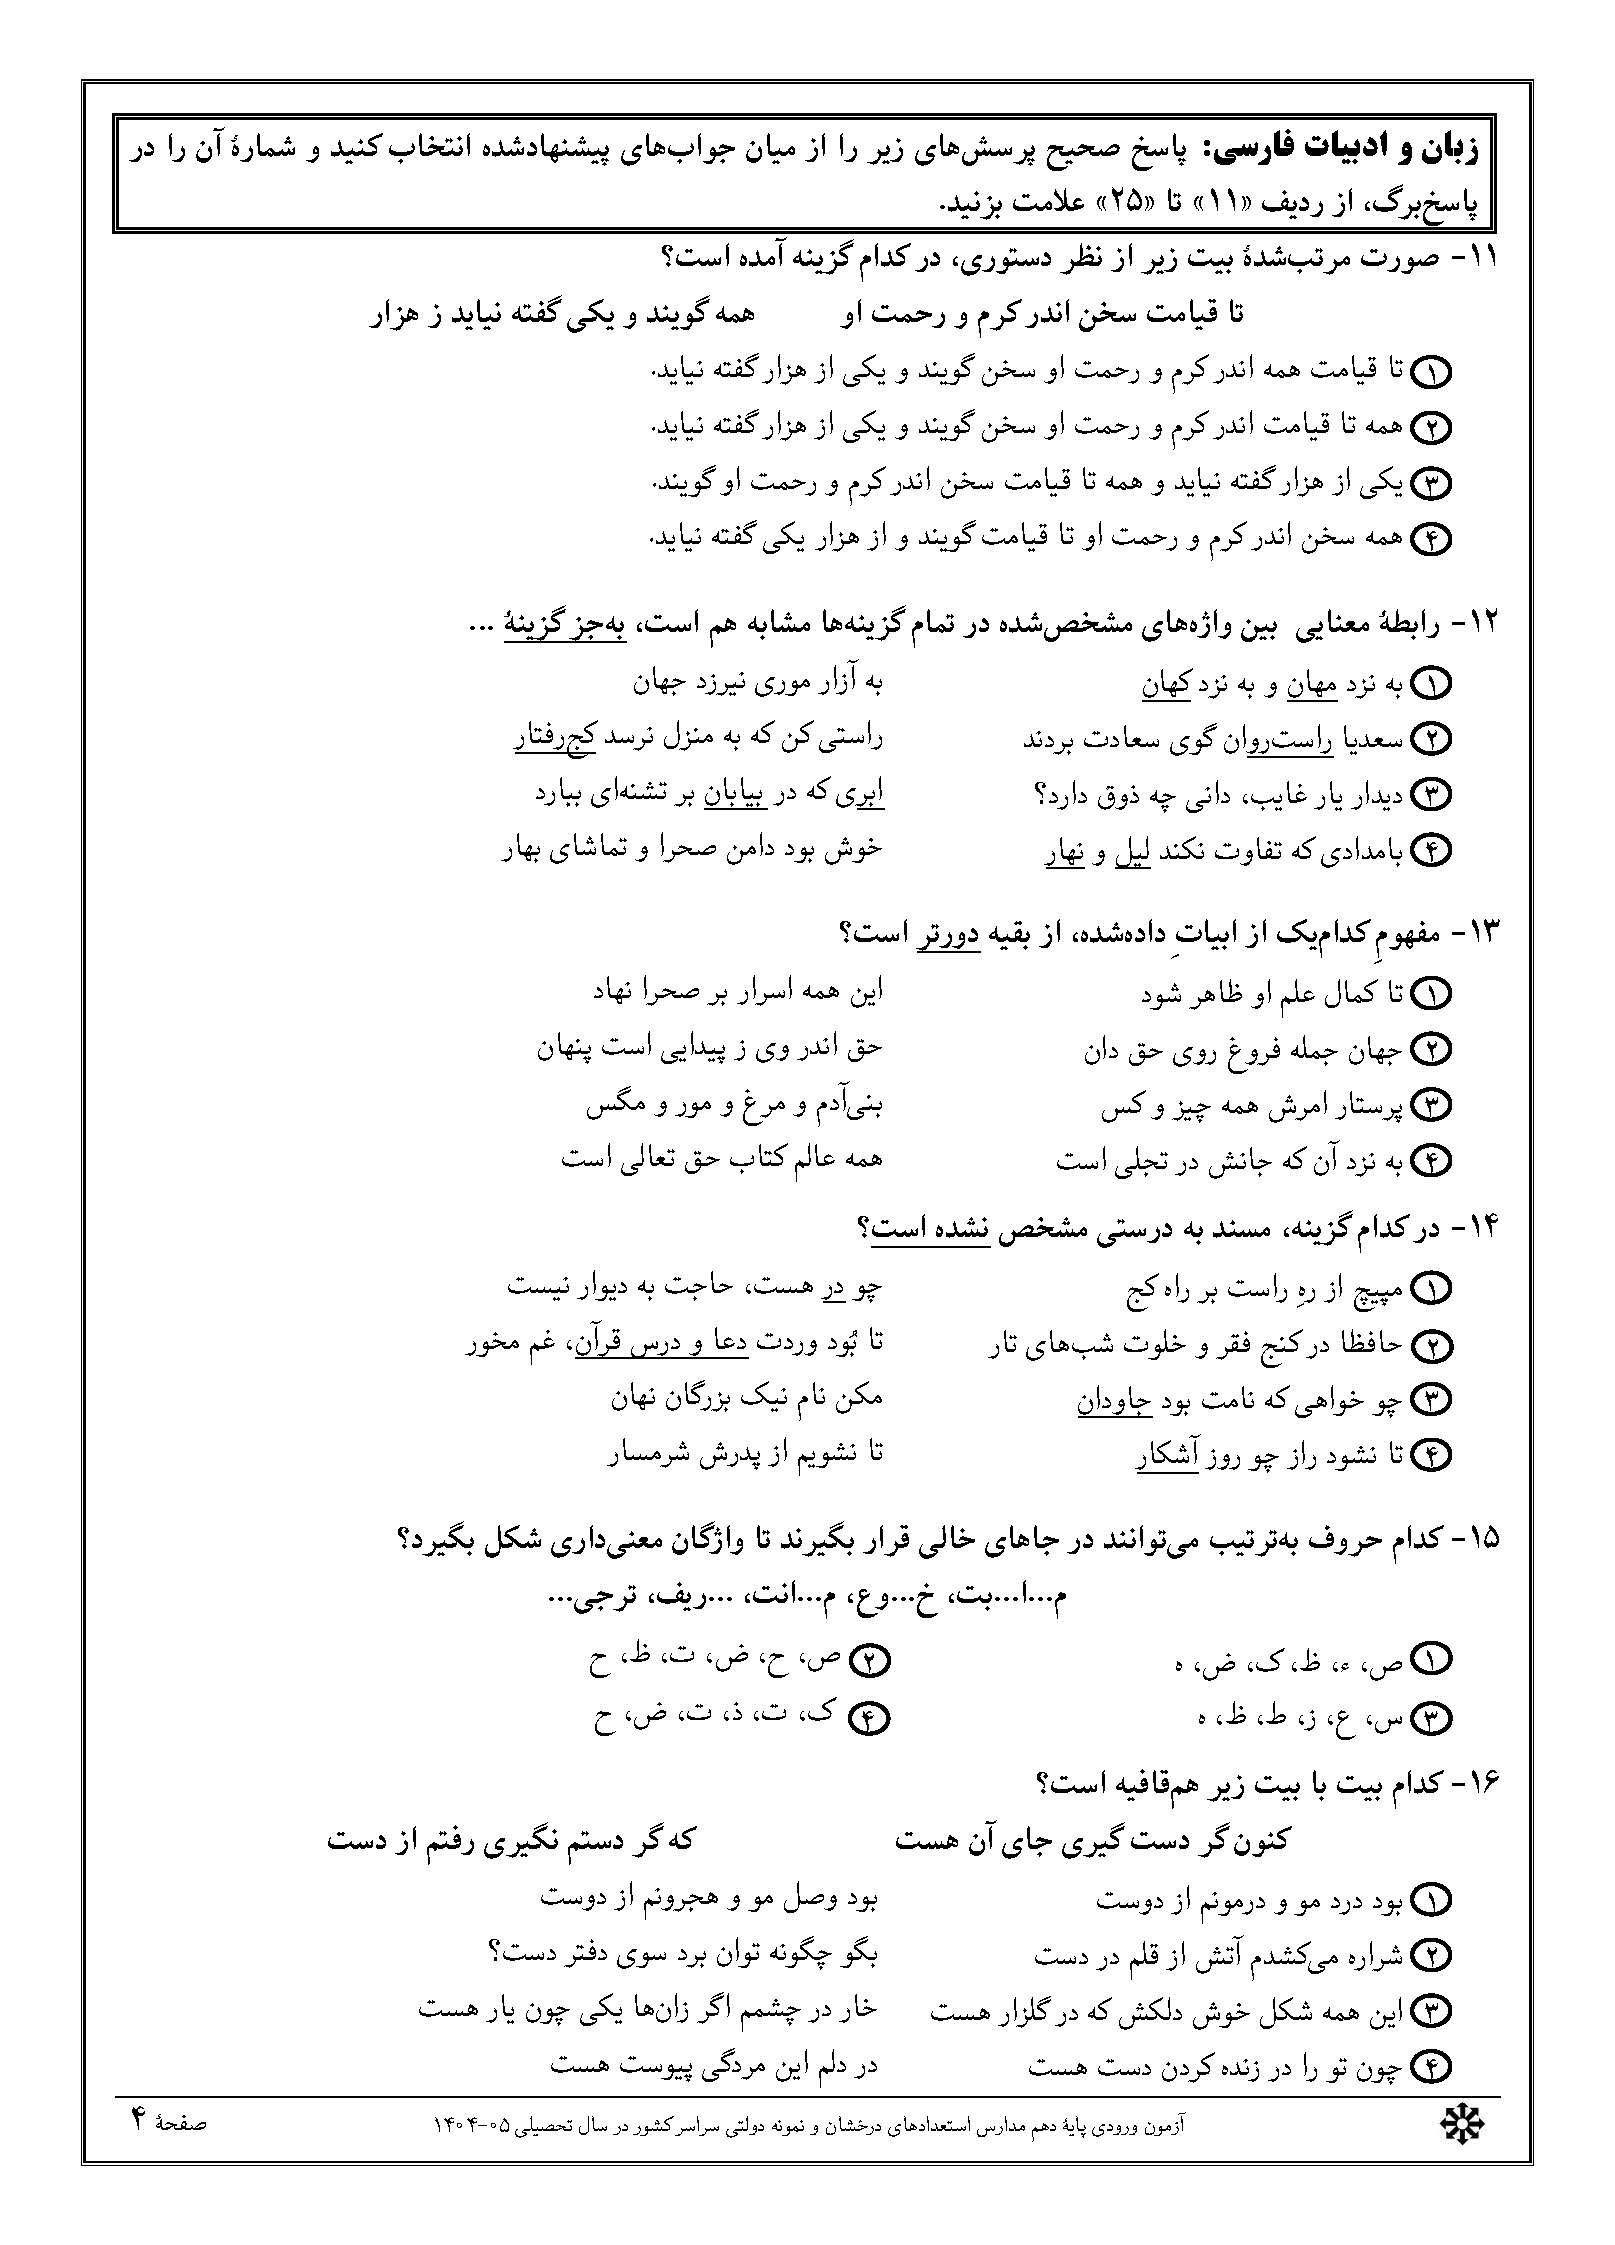 زبان و ادبیات فارسی: پاسخ صحیح پرسش‌های زیر را از میان جواب‌های پیشنهادشده انتخاب کنید و شمارهٔ آن را در
پاسخ‌برگ، از ردیف «۱۱» تا «۲۵» علامت بزنید.
۱۱- صورت مرتب‌شدهٔ بیت زیر از نظر دستوری، در کدام گزینه آمده است؟
تا قیامت سخن اندر کرم و رحمت او همه گویند و یکی گفته نیاید ز هزار
۱ تا قیامت همه اندر کرم و رحمت او سخن گویند و یکی از هزار گفته نیاید.
۲ همه تا قیامت اندر کرم و رحمت او سخن گویند و یکی از هزار گفته نیاید.
۳ یکی از هزار گفته نیاید و همه تا قیامت سخن اندر کرم و رحمت او گویند.
۴ همه سخن اندر کرم و رحمت او تا قیامت گویند و از هزار یکی گفته نیاید.
۱۲- رابطهٔ معنایی بین واژه‌های مشخص‌شده در تمام گزینه‌ها مشابه هم است، به‌جز گزینهٔ ...
۱ به نزد مهان و به نزد کهان به آزار موری نیرزد جهان
۲ سعدیا راست‌روان گوی سعادت بردند راستی کن که به منزل نرسد کج‌رفتار
۳ دیدار یار غایب، دانی چه ذوق دارد؟ ابری که در بیابان بر تشنه‌ای ببارد
۴ بامدادی که تفاوت نکند لیل و نهار خوش بود دامن صحرا و تماشای بهار
۱۳- مفهومِ کدام‌یک از ابیاتِ داده‌شده، از بقیه دورتر است؟
۱ تا کمال علم او ظاهر شود این همه اسرار بر صحرا نهاد
۲ جهان جمله فروغ روی حق دان حق اندر وی ز پیدایی است پنهان
۳ پرستار امرش همه چیز و کس بنی‌آدم و مرغ و مور و مگس
۴ به نزد آن که جانش در تجلی است همه عالم کتاب حق تعالی است
۱۴- در کدام گزینه، مسند به درستی مشخص نشده است؟
۱ مپیچ از رهِ راست بر راه کج چو در هست، حاجت به دیوار نیست
۲ حافظا در کنج فقر و خلوت شب‌های تار تا بُود وردت دعا و درس قرآن، غم مخور
۳ چو خواهی که نامت بود جاودان مکن نام نیک بزرگان نهان
۴ تا نشود راز چو روز آشکار تا نشویم از پدرش شرمسار
۱۵- کدام حروف به‌ترتیب می‌توانند در جاهای خالی قرار بگیرند تا واژگان معنی‌داری شکل بگیرد؟
م...ا...بت، خ...وع، م...انت، ...ریف، ترجی...
۱ ص، ء، ظ، ک، ض، ه
۲ ص، ح، ض، ت، ظ، ح
۳ س، ع، ز، ط، ظ، ه
۴ ک، ت، ذ، ت، ض، ح
۱۶- کدام بیت با بیت زیر هم‌قافیه است؟
کنون گر دست گیری جای آن هست که گر دستم نگیری رفتم از دست
۱ بود درد مو و درمونم از دوست بود وصل مو و هجرونم از دوست
۲ شراره می‌کشدم آتش از قلم در دست بگو چگونه توان برد سوی دفتر دست؟
۳ این همه شکل خوش دلکش که در گلزار هست خار در چشمم اگر زان‌ها یکی چون یار هست
۴ چون تو را در زنده کردن دست هست در دلم این مردگی پیوست هست
آزمون ورودی پایهٔ دهم مدارس استعدادهای درخشان و نمونه دولتی سراسر کشور در سال تحصیلی ۰۵-۱۴۰۴ صفحهٔ ۴